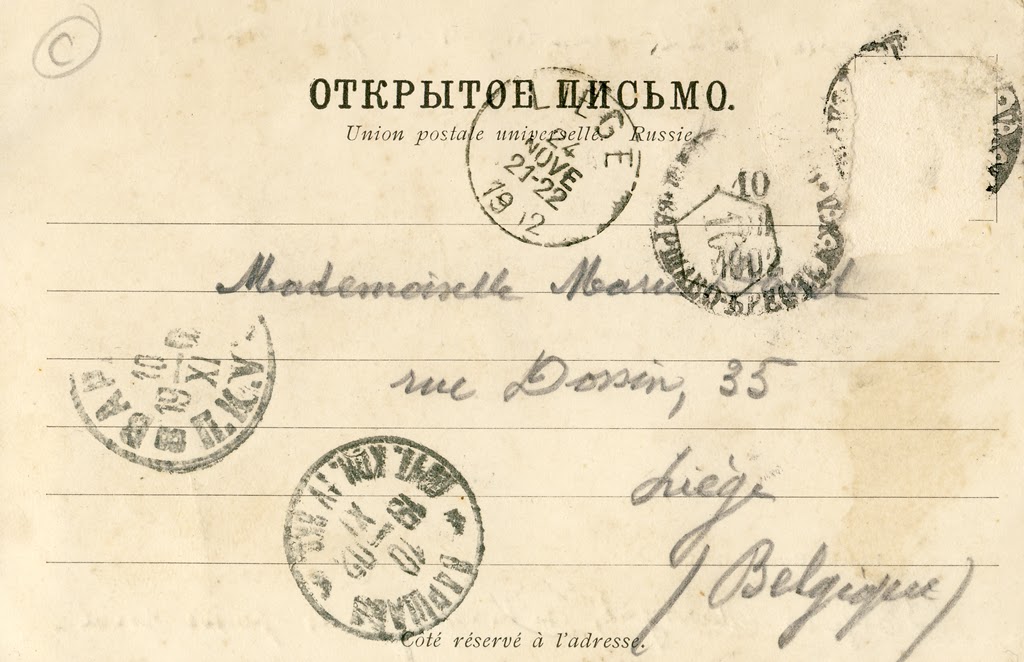 C
ОТКРЫТОЕ ПИСЬМО.
Union postale universelle. Russie
LIEGE
24
NOVE
21-22
1902
10
1902
Mademoiselle
rue Dossin, 35
Liége
(Belgique)
10
XI
ВАРШАВА
10
XI
Côté réservé à l'adresse.